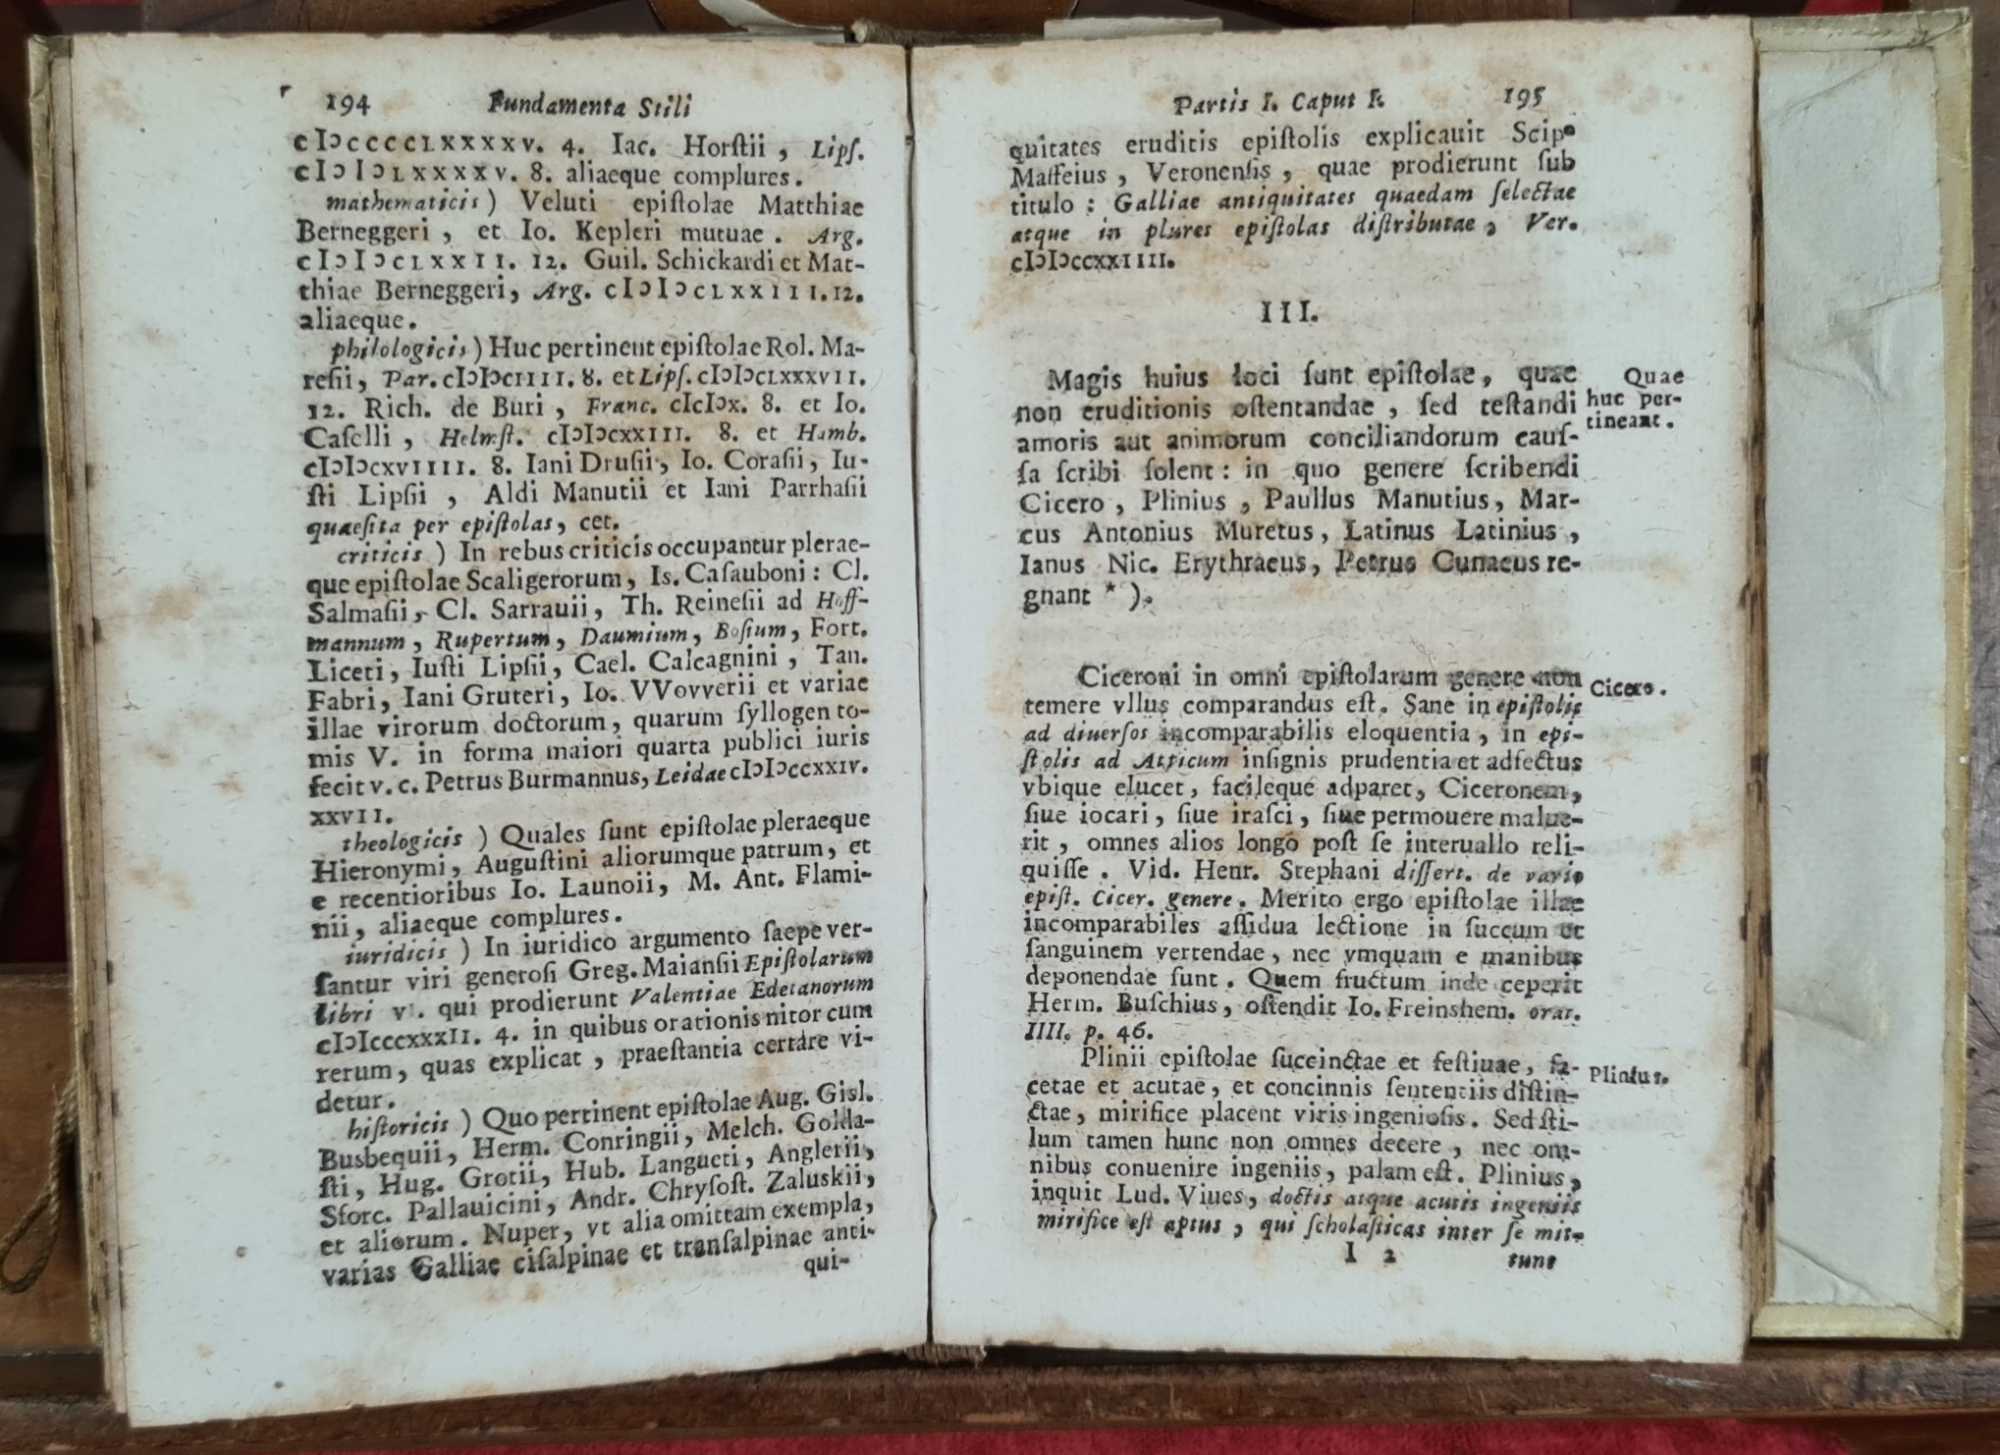 194 Fundamenta Stili
cIↄccccLxxxxv. 4. Iac. Horſtii, Lipſ.
cIↄIↄLxxxxv. 8. aliaeque complures.
mathematicis) Veluti epiſtolae Matthiae
Berneggeri, et Io. Kepleri mutuae. Arg.
cIↄIↄcLxxII. 12. Guil. Schickardi et Mat-
thiae Berneggeri, Arg. cIↄIↄcLxxIII. 12.
aliaeque.
philologicis) Huc pertinent epiſtolae Rol. Ma-
reſii, Par. cIↄIↄcIIII. 8. et Lipſ. cIↄIↄcLxxxvII.
12. Rich. de Buri, Franc. cIcIↄx. 8. et Io.
Caſelli, Helmſt. cIↄIↄcxxIII. 8. et Hamb.
cIↄIↄcxvIIII. 8. Iani Druſii, Io. Coraſii, Iu-
ſti Lipſii, Aldi Manutii et Iani Parrhaſii
quaeſita per epiſtolas, cet.
criticis) In rebus criticis occupantur plerae-
que epiſtolae Scaligerorum, Is. Caſauboni: Cl.
Salmaſii, Cl. Sarrauii, Th. Reineſii ad Hoff-
mannum, Rupertum, Daumium, Boſium, Fort.
Liceti, Iuſti Lipſii, Cael. Calcagnini, Tan.
Fabri, Iani Gruteri, Io. VVovverii et variae
illae virorum doctorum, quarum ſyllogen to-
mis V. in forma maiori quarta publici iuris
fecit v. c. Petrus Burmannus, Leidae cIↄIↄccxxIv.
xxvII.
theologicis) Quales ſunt epiſtolae pleraeque
Hieronymi, Auguſtini aliorumque patrum, et
e recentioribus Io. Launoii, M. Ant. Flami-
nii, aliaeque complures.
iuridicis) In iuridico argumento ſaepe ver-
ſantur viri generoſi Greg. Maianſii Epiſtolarum
libri v. qui prodierunt Valentiae Edetanorum
cIↄIcccxxxII. 4. in quibus orationis nitor cum
rerum, quas explicat, praeſtantia certare vi-
detur.
hiſtoricis) Quo pertinent epiſtolae Aug. Gisl.
Busbequii, Herm. Conringii, Melch. Golda-
ſti, Hug. Grotii, Hub. Langueti, Anglerii,
Sforc. Pallauicini, Andr. Chryſoſt. Zaluskii,
et aliorum. Nuper, vt alia omittam exempla,
varias Galliae ciſalpinae et tranſalpinae anti-
qui-
Partis I. Caput I. 195
quitates eruditis epiſtolis explicauit Scip.
Maffeius, Veronenſis, quae prodierunt ſub
titulo: Galliae antiquitates quaedam ſelectae
atque in plures epiſtolas diſtributae, Ver.
cIↄIↄccxxIIII.
III.
Magis huius loci ſunt epiſtolae, quae
non eruditionis oſtentandae, ſed teſtandi
amoris aut animorum conciliandorum cauſ-
ſa ſcribi ſolent: in quo genere ſcribendi
Cicero, Plinius, Paullus Manutius, Mar-
cus Antonius Muretus, Latinus Latinius,
Ianus Nic. Erythraeus, Petrus Cunaeus re-
gnant *).
Quae
huc per-
tineant.
Ciceroni in omni epiſtolarum genere non
temere vllus comparandus eſt. Sane in epiſtolis
ad diuerſos incomparabilis eloquentia, in epi-
ſtolis ad Atticum inſignis prudentia et adfectus
vbique elucet, facileque adparet, Ciceronem,
ſiue iocari, ſiue iraſci, ſiue permouere malue-
rit, omnes alios longo poſt ſe interuallo reli-
quiſſe. Vid. Henr. Stephani diſſert. de vario
epiſt. Cicer. genere. Merito ergo epiſtolae illae
incomparabiles aſſidua lectione in ſuccum et
ſanguinem vertendae, nec vmquam e manibus
deponendae ſunt. Quem fructum inde ceperit
Herm. Buſchius, oſtendit Io. Freinshem. orat.
IIII. p. 46.
Cicero.
Plinii epiſtolae ſuccinctae et feſtiuae, fa-
cetae et acutae, et concinnis ſententiis diſtin-
ctae, mirifice placent viris ingenioſis. Sed ſti-
lum tamen hunc non omnes decere, nec om-
nibus conuenire ingeniis, palam eſt. Plinius,
inquit Lud. Viues, doctis atque acutis ingeniis
mirifice eſt aptus, qui ſcholaſticas inter ſe mit-
Plinius.
I 2 tunt